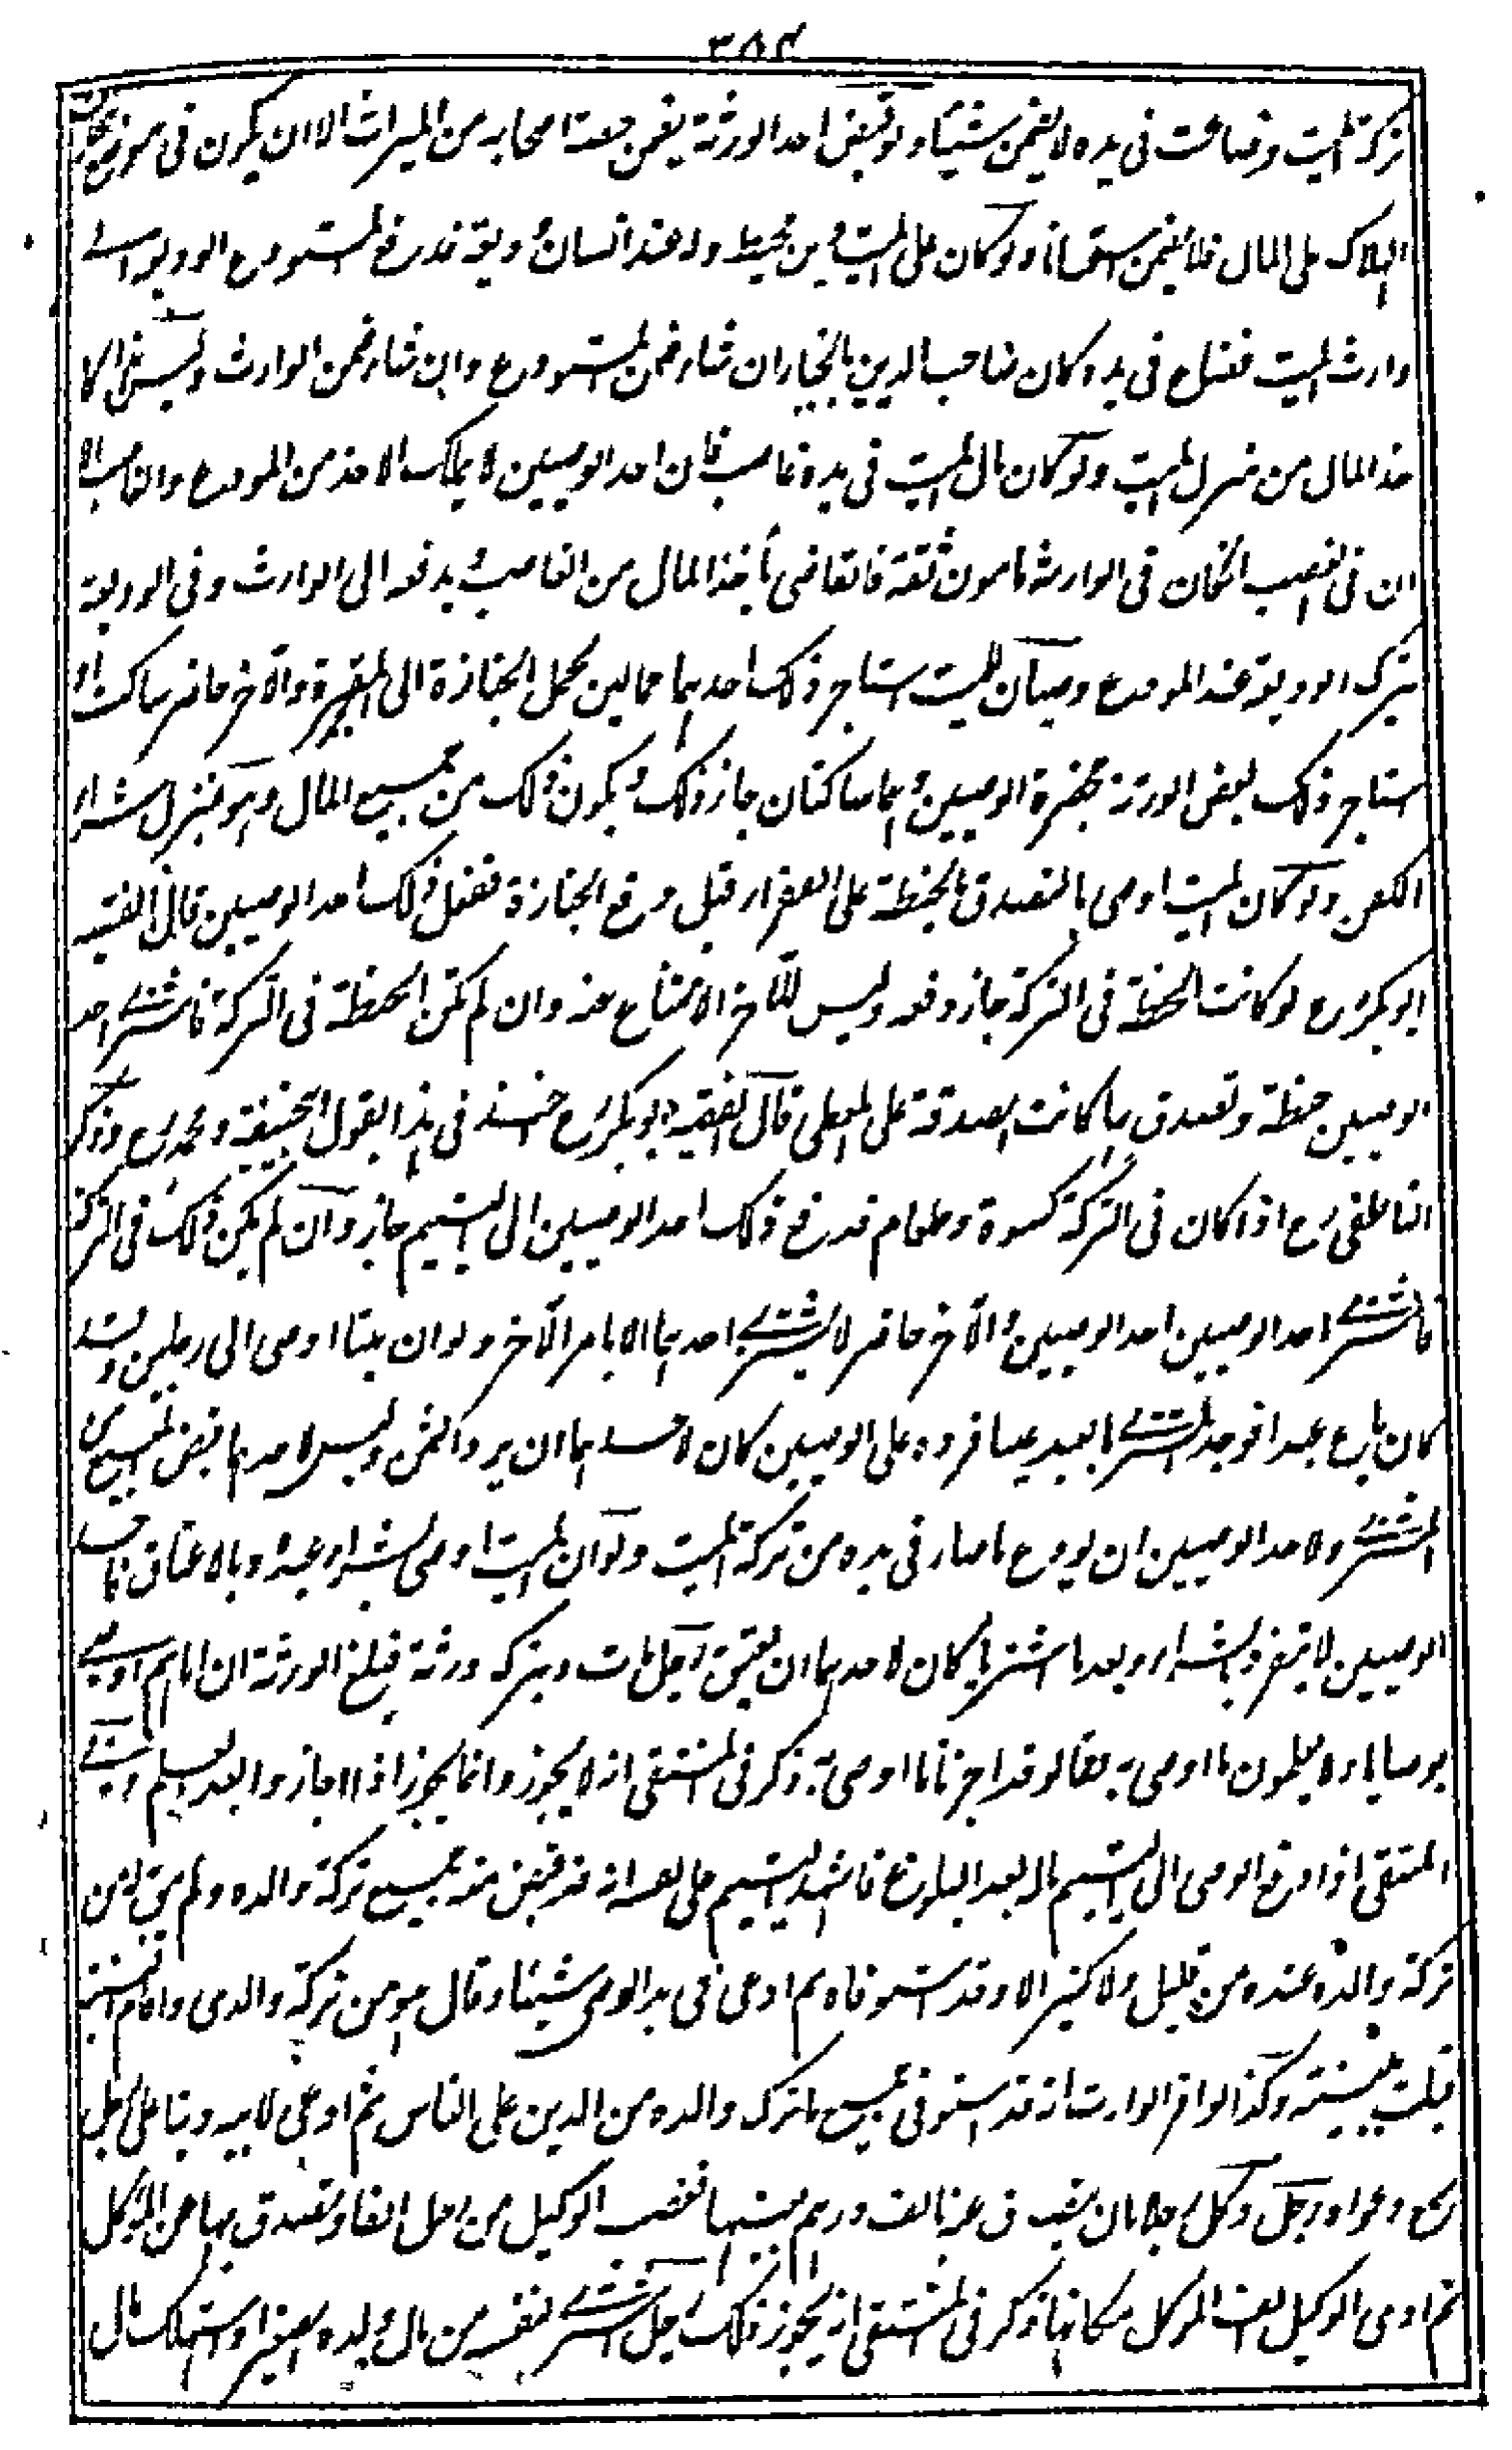 ٣٥٤
تركة الميت وضاعت في يده لا يضمن شيئا ولو قبض احد الورثة يضمن حصة اصحابه من الميراث الا ان يكون في موضع يخاف
الهلاك على المال فلا يضمن استحسانا ولو كان على الميت دين محيط وله عند انسان وديعة فدفع المستودع الوديعة الى
وارث الميت فضاع في يده كان صاحب الدين بالخيار ان شاء ضمن المستودع وان شاء ضمن الوارث وليس هذا كا
خذ المال من منزل الميت ولو كان مال الميت في يد غاصب فان احد الوصيين لا يملك الاخذ من المودع والغاصب الا
ان في الغصب ان كان في الوارث مامون ثقة فالقاضي يأخذ المال من الغاصب ويدفعه الى الوارث وفي الوديعة
يترك الوديعة عند المودع وصيان لميت استاجر ذلك احدهما حمالين لحمل الجنازة الى المقبرة والآخر حاضر ساكت او
استاجر ذلك بعض الورثة بحضرة الوصيين وهما ساكتان جاز ذلك ويكون ذلك من جميع المال وهو بمنزلة شراء
الكفن ولو كان الميت اوصى بالتصدق بالحنطة على الفقراء قبل رفع الجنازة ففعل ذلك احد الوصيين قال الفقيه
ابو بكر رح لو كانت الحنطة في التركة جاز دفعه وليس للآخر الامتناع عنه وان لم تكن الحنطة في التركة فاشترى احد
الوصيين حنطة وتصدق بها كانت الصدقة على المعطي قال الفقيه ابو بكر رح اخذ في هذا بقول ابي حنيفة ومحمد رح وذكر
الناطفي رح اذا كان في التركة كسوة وطعام فدفع ذلك احد الوصيين الى اليتيم جاز وان لم يكن ذلك في التركة
فاشترى احد الوصيين احد الوصيين والآخر حاضر لا يشترى احدهما الا بامر الآخر ولو ان ميتا اوصى الى رجلين وقد
كان باع عبدا فوجد المشترى بالعبد عيبا فرده على الوصيين كان لاحدهما ان يرد الثمن وليس لاحدهما قبض المبيع من
المشترى ولاحد الوصيين ان يودع ما صار في يده من تركة الميت ولو ان الميت اوصى بشراء عبد وبالاعتاق فاحد
الوصيين لا ينفرد بالشراء وبعد ما اشتريا كان لاحدهما ان يعتق رجل مات وترك ورثة فبلغ الورثة ان اباهم اوصى
بوصايا ولا يعلمون ما اوصى به فقالوا قد اجزنا ما اوصى به ذكر في المنتقى انه لا يجوز وانما يجوز اذا اجازوا بعد العلم وفي
المنتقى اذا دفع الوصي الى اليتيم ماله بعد البلوغ فاشهد اليتيم على نفسه انه قد قبض منه جميع تركة والده ولم يبق له من
تركة والده عنده من قليل ولا كثير الا وقد استوفاه ثم ادعى في يد الوصي شيئا وقال هو من تركة والدي واقام البينة
قبلت بينته وكذا لو اقر الوارث انه قد استوفى جميع ما ترك والده من الدين على الناس ثم ادعى لابيه دينا على رجل
تسمع دعواه رجل وكل رجلا بان يتصدق عنه بالف درهم بعينها فغصب الوكيل من رجل الفا وتصدق بها عن الموكل
ثم ادى الوكيل الف الموكل مكانها ذكر في المنتقى انه يجوز ذلك رجل اشترى لنفسه من مال ولده الصغير او استهلك مال